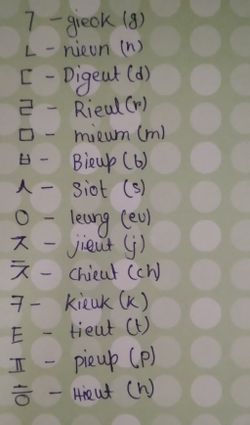 ㄱ - gieok (g)
ㄴ - nieun (n)
ㄷ - Digeut (d)
ㄹ - Rieul (r)
ㅁ - mieum (m)
ㅂ - Bieup (b)
ㅅ - Siot (s)
ㅇ - Ieung (eu)
ㅈ - jieut (j)
ㅊ - chieut (ch)
ㅋ - kieuk (k)
ㅌ - tieut (t)
ㅍ - pieup (p)
ㅎ - Hieut (h)